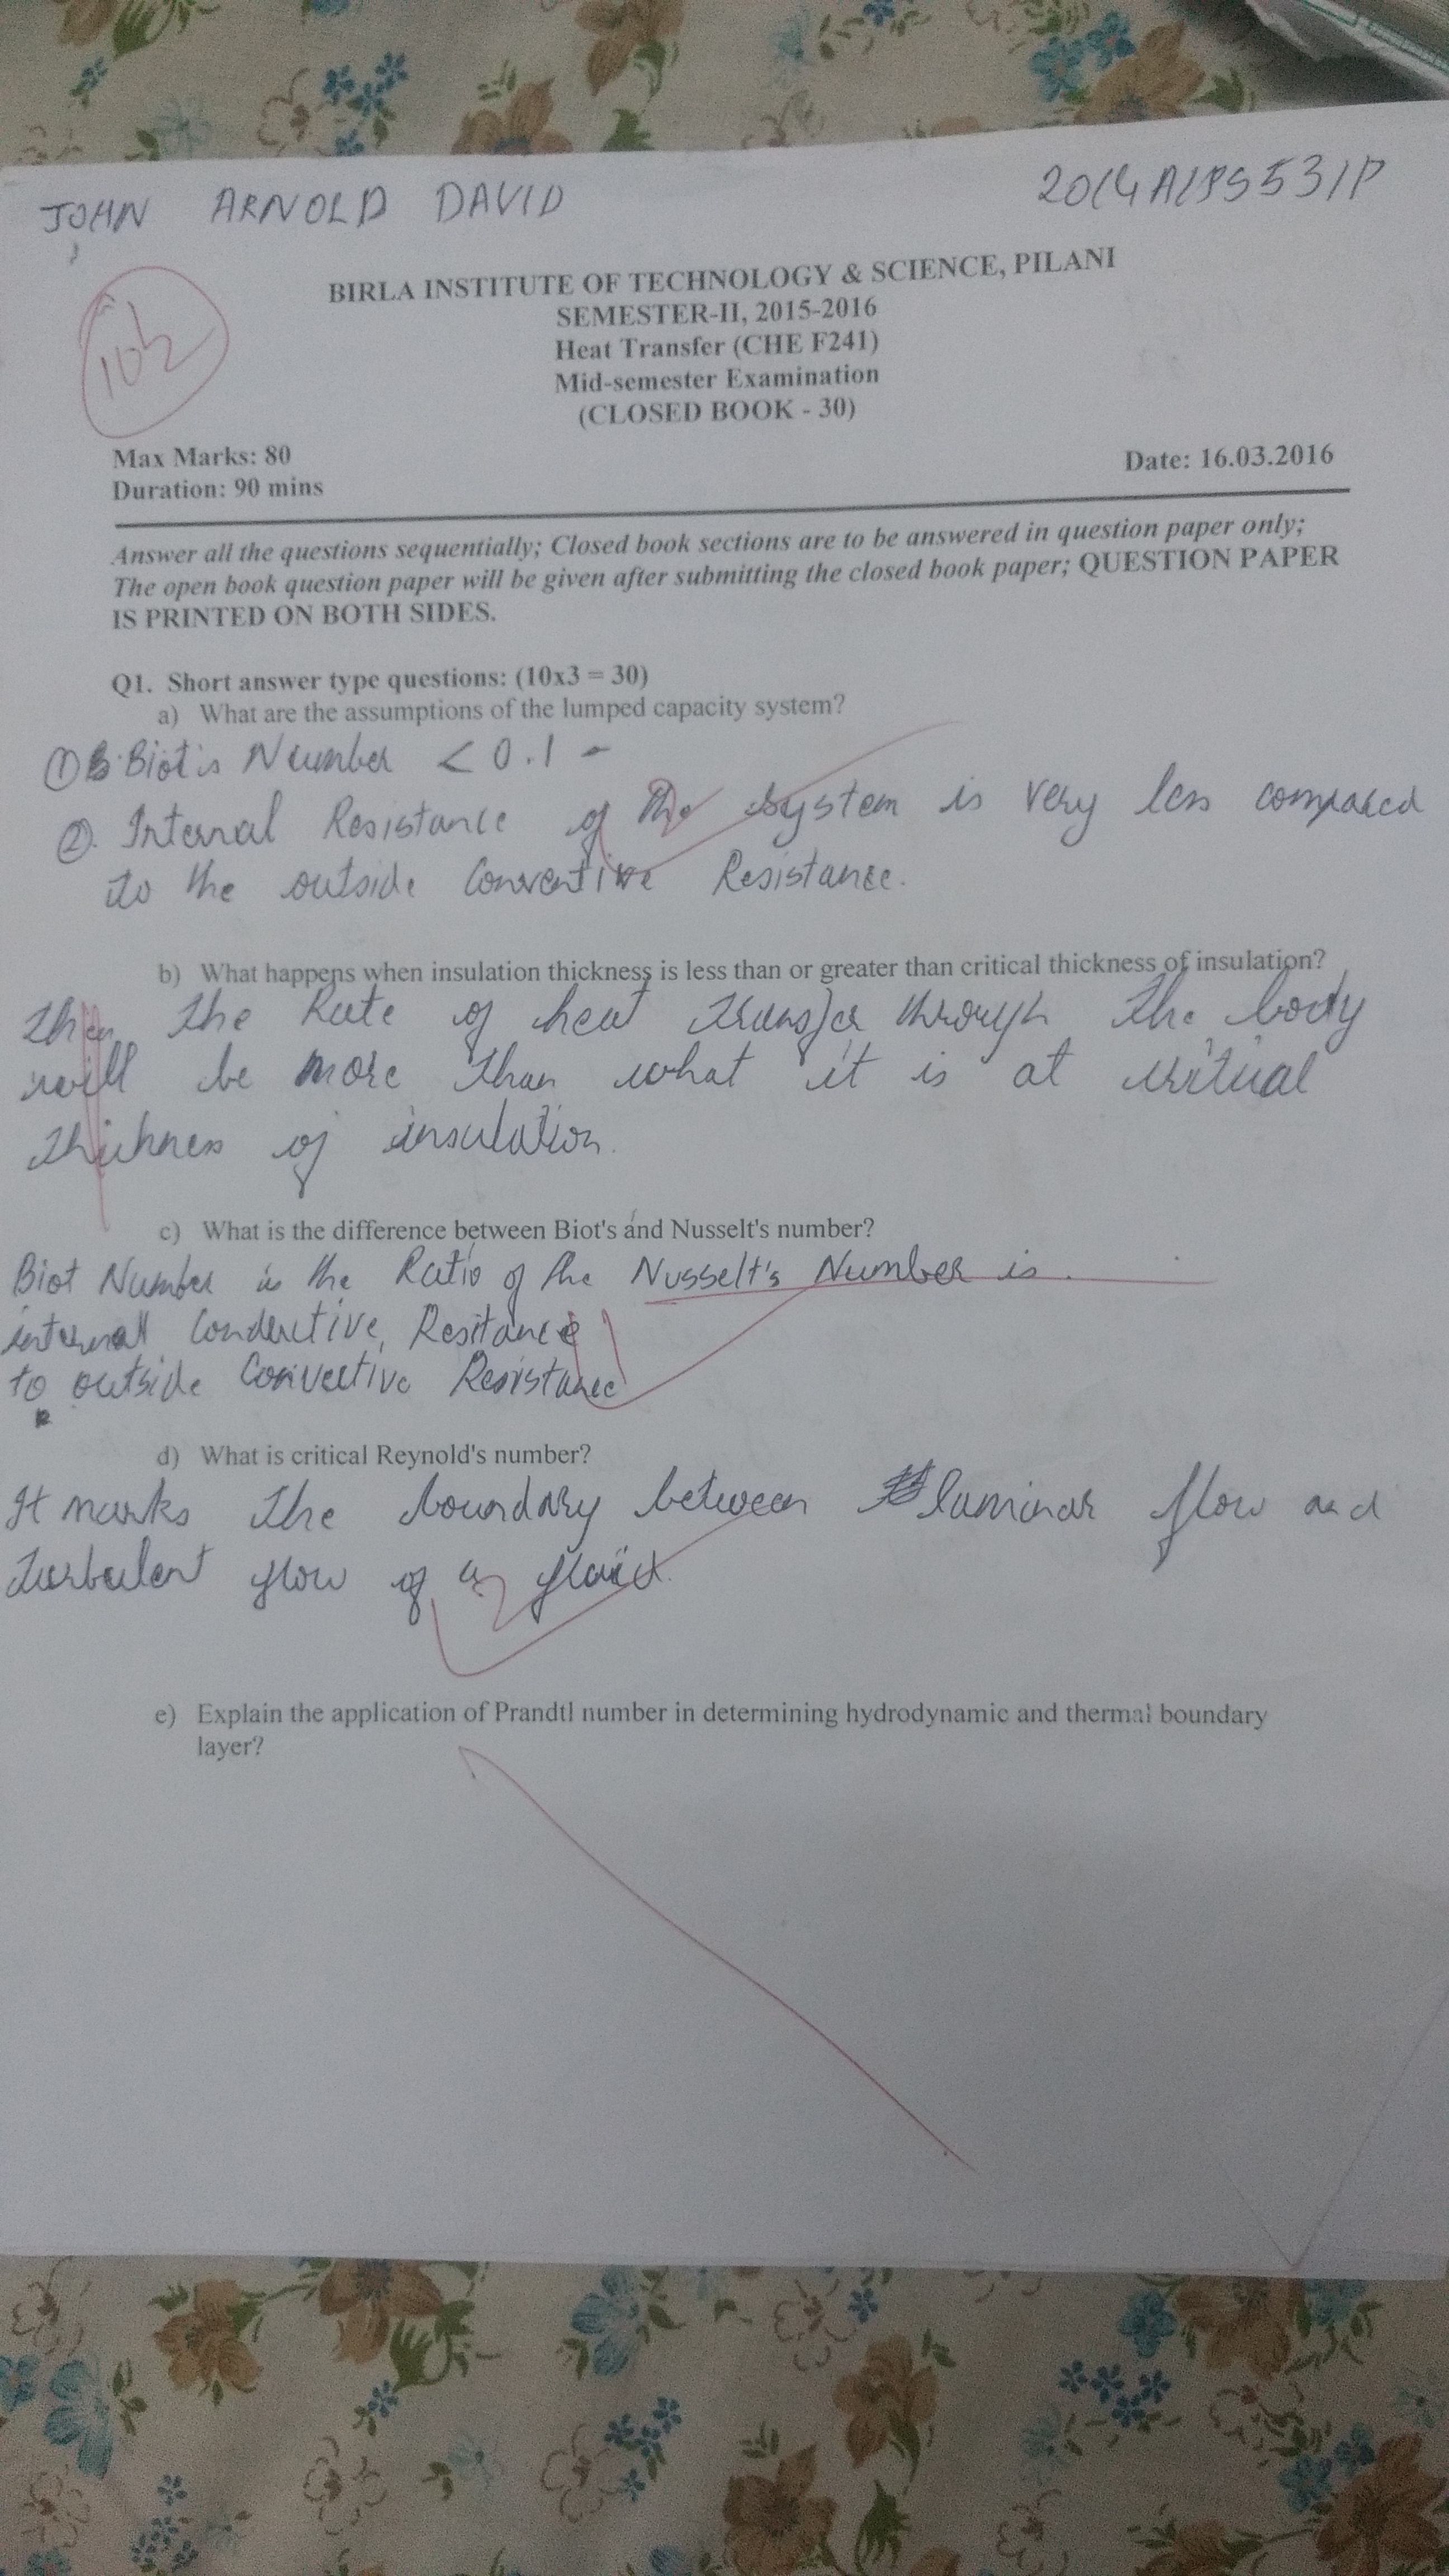 JOHN ARNOLD DAVID
2014A1PS531P
10½
BIRLA INSTITUTE OF TECHNOLOGY & SCIENCE, PILANI
SEMESTER-II, 2015-2016
Heat Transfer (CHE F241)
Mid-semester Examination
(CLOSED BOOK - 30)
Max Marks: 80
Date: 16.03.2016
Duration: 90 mins
Answer all the questions sequentially; Closed book sections are to be answered in question paper only;
The open book question paper will be given after submitting the closed book paper; QUESTION PAPER
IS PRINTED ON BOTH SIDES.
Q1. Short answer type questions: (10x3 = 30)
a) What are the assumptions of the lumped capacity system?
① Biot's Number < 0.1 -
②. Internal Resistance of the system is very less compared
to the outside Conventive Resistance.
b) What happens when insulation thickness is less than or greater than critical thickness of insulation?
Then the Rate of heat transfer through the body
will be more than what it is at critical
thickness of insulation.
c) What is the difference between Biot's and Nusselt's number?
Biot Number is the Ratio of the Nusselt's Number is
internal Conductive Resistance
to outside Convective Resistance
d) What is critical Reynold's number?
It marks the boundary between laminar flow and
turbulent flow of a fluid.
e) Explain the application of Prandtl number in determining hydrodynamic and thermal boundary
layer?